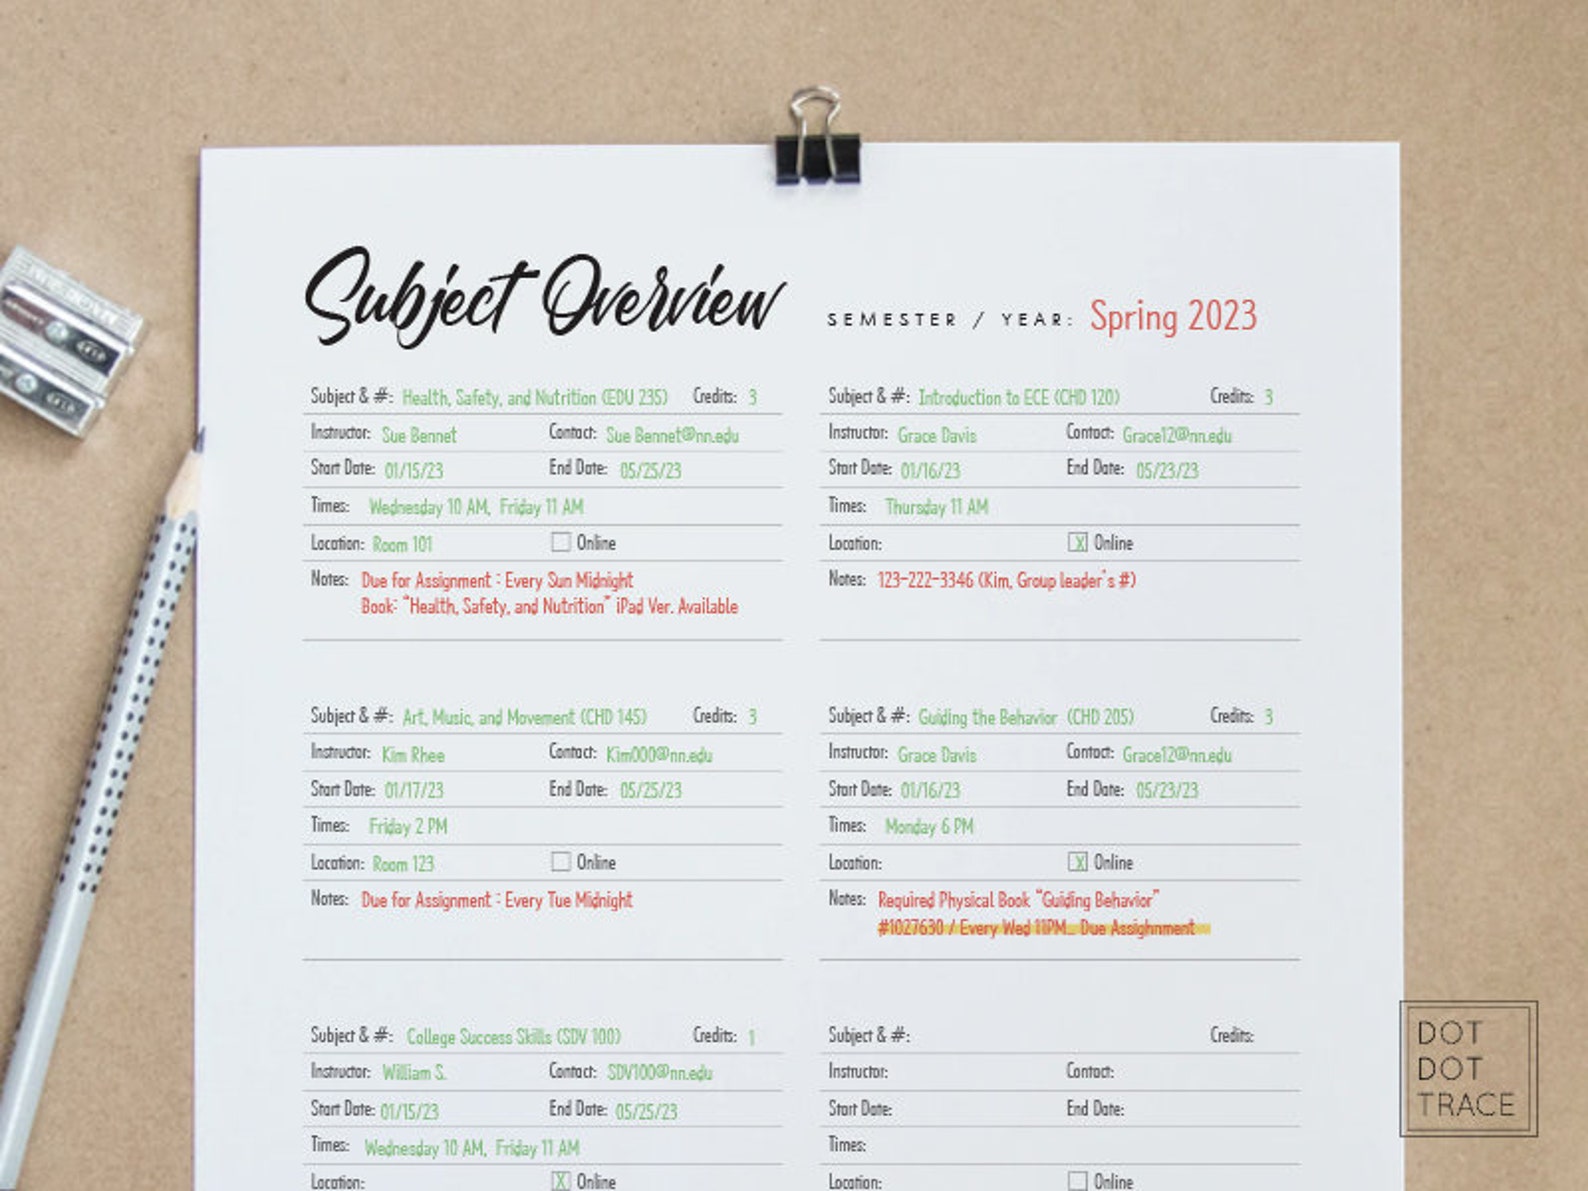 Subject Overview SEMESTER / YEAR: Spring 2023
Subject & #: Health, Safety, and Nutrition (EDU 235) Credits: 3
Instructor: Sue Bennet Contact: Sue Bennet@nn.edu
Start Date: 01/15/23 End Date: 05/25/23
Times: Wednesday 10 AM, Friday 11 AM
Location: Room 101 Online
Notes: Due for Assignment : Every Sun Midnight
Book: "Health, Safety, and Nutrition" iPad Ver. Available
Subject & #: Introduction to ECE (CHD 120) Credits: 3
Instructor: Grace Davis Contact: Grace12@nn.edu
Start Date: 01/16/23 End Date: 05/23/23
Times: Thursday 11 AM
Location: X Online
Notes: 123-222-3346 (Kim, Group leader's #)
Subject & #: Art, Music, and Movement (CHD 145) Credits: 3
Instructor: Kim Rhee Contact: Kim000@nn.edu
Start Date: 01/17/23 End Date: 05/25/23
Times: Friday 2 PM
Location: Room 123 Online
Notes: Due for Assignment : Every Tue Midnight
Subject & #: Guiding the Behavior (CHD 205) Credits: 3
Instructor: Grace Davis Contact: Grace12@nn.edu
Start Date: 01/16/23 End Date: 05/23/23
Times: Monday 6 PM
Location: X Online
Notes: Required Physical Book "Guiding Behavior"
#1027630 / Every Wed 11PM... Due Assighnment
Subject & #: College Success Skills (SDV 100) Credits: 1
Instructor: William S. Contact: SDV100@nn.edu
Start Date: 01/15/23 End Date: 05/25/23
Times: Wednesday 10 AM, Friday 11 AM
Location: X Online
Subject & #: Credits:
Instructor: Contact:
Start Date: End Date:
Times:
Location: Online
DOT
DOT
TRACE